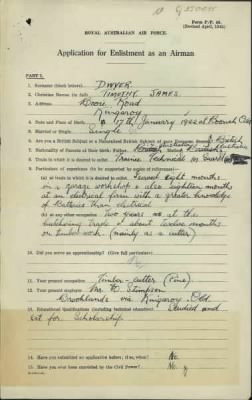 Form P/P. 44.
(Revised April, 1941)
ROYAL AUSTRALIAN AIR FORCE.
Application for Enlistment as an Airman
PART I.
1. Surname (block letters) DWYER
2. Christian Names (in full) TIMOTHY JAMES
3. Address Booie Road
Kingaroy
4. Date and Place of Birth 17th January 1922 at
5. Married or Single Single
6. Are you a British Subject or a Naturalized British Subject of pure European descent? British
7. Nationality of Parents at their Birth: Father Mother
8. Trade in which it is desired to enlist Trainee Technical or Guard
9. Particulars of experience (to be supported by copies of references)—
(a) at trade in which it is desired to enlist. Served eight months
in a garage workshop & also eighteen months
at an electrical firm with a greater knowledge
of Batteries than electrical
(b) at any other occupation Two years at the
butchering trade & about twelve months
on timber work (mainly as cutter)
10. Did you serve an apprenticeship? (Give full particulars) No
11. Your present occupation Timber-cutter (Pine)
12. Your present employer Mr
Brooklands via Kingaroy Qld
13. Educational Qualifications (including technical education) Studied and
sat for Scholarship
14. Have you submitted an application before; if so, when? No
15. Have you ever been convicted by the Civil Power? No